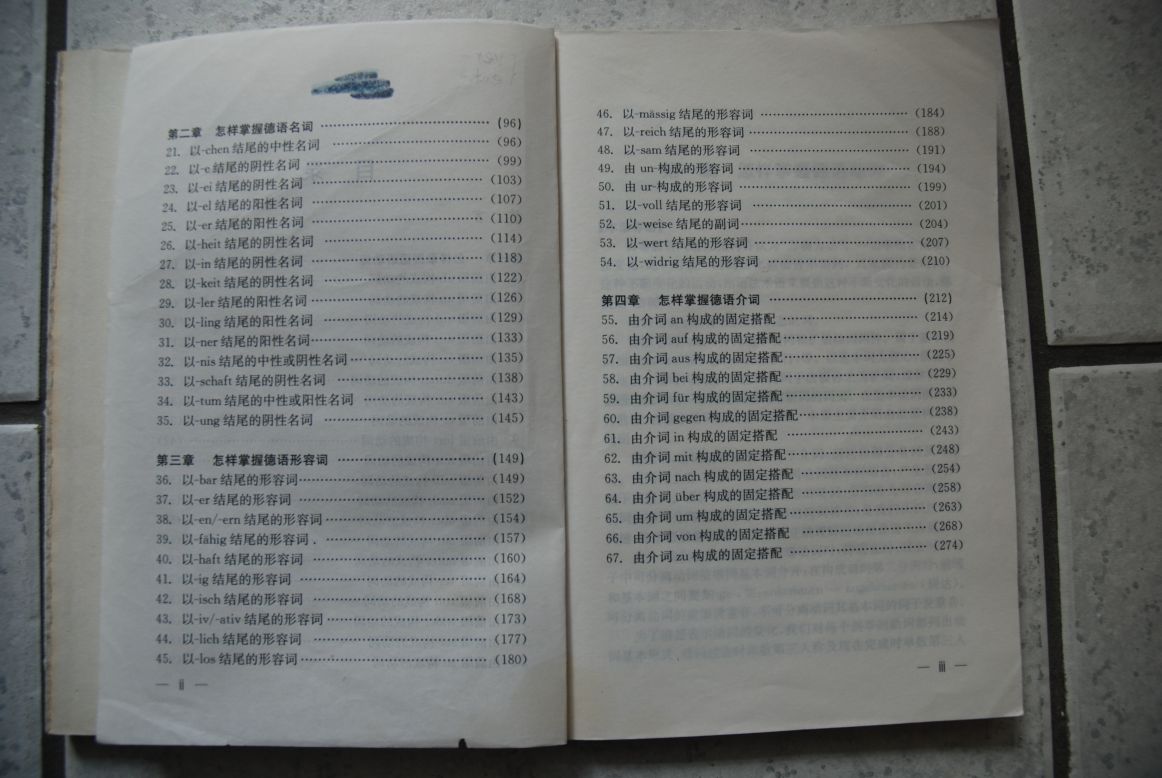 第二章 怎样掌握德语名词 ……………………………… (96)
21. 以-chen 结尾的中性名词 ……………………………… (96)
22. 以-e 结尾的阴性名词 ……………………………… (99)
23. 以-ei 结尾的阴性名词 ……………………………… (103)
24. 以-el 结尾的阳性名词 ……………………………… (107)
25. 以-er 结尾的阳性名词 ……………………………… (110)
26. 以-heit 结尾的阴性名词 ……………………………… (114)
27. 以-in 结尾的阴性名词 ……………………………… (118)
28. 以-keit 结尾的阴性名词 ……………………………… (122)
29. 以-ler 结尾的阳性名词 ……………………………… (126)
30. 以-ling 结尾的阳性名词 ……………………………… (129)
31. 以-ner 结尾的阳性名词 ……………………………… (133)
32. 以-nis 结尾的中性或阴性名词 ……………………………… (135)
33. 以-schaft 结尾的阴性名词 ……………………………… (138)
34. 以-tum 结尾的中性或阳性名词 ……………………………… (143)
35. 以-ung 结尾的阴性名词 ……………………………… (145)
第三章 怎样掌握德语形容词 ……………………………… (149)
36. 以-bar 结尾的形容词 ……………………………… (149)
37. 以-er 结尾的形容词 ……………………………… (152)
38. 以-en/-ern 结尾的形容词 ……………………………… (154)
39. 以-fähig 结尾的形容词 ……………………………… (157)
40. 以-haft 结尾的形容词 ……………………………… (160)
41. 以-ig 结尾的形容词 ……………………………… (164)
42. 以-isch 结尾的形容词 ……………………………… (168)
43. 以-iv/-ativ 结尾的形容词 ……………………………… (173)
44. 以-lich 结尾的形容词 ……………………………… (177)
45. 以-los 结尾的形容词 ……………………………… (180)
— ⅱ —
46. 以-mässig 结尾的形容词 ……………………………… (184)
47. 以-reich 结尾的形容词 ……………………………… (188)
48. 以-sam 结尾的形容词 ……………………………… (191)
49. 由 un-构成的形容词 ……………………………… (194)
50. 由 ur-构成的形容词 ……………………………… (199)
51. 以-voll 结尾的形容词 ……………………………… (201)
52. 以-weise 结尾的副词 ……………………………… (204)
53. 以-wert 结尾的形容词 ……………………………… (207)
54. 以-widrig 结尾的形容词 ……………………………… (210)
第四章 怎样掌握德语介词 ……………………………… (212)
55. 由介词 an 构成的固定搭配 ……………………………… (214)
56. 由介词 auf 构成的固定搭配 ……………………………… (219)
57. 由介词 aus 构成的固定搭配 ……………………………… (225)
58. 由介词 bei 构成的固定搭配 ……………………………… (229)
59. 由介词 für 构成的固定搭配 ……………………………… (233)
60. 由介词 gegen 构成的固定搭配 ……………………………… (238)
61. 由介词 in 构成的固定搭配 ……………………………… (243)
62. 由介词 mit 构成的固定搭配 ……………………………… (248)
63. 由介词 nach 构成的固定搭配 ……………………………… (254)
64. 由介词 über 构成的固定搭配 ……………………………… (258)
65. 由介词 um 构成的固定搭配 ……………………………… (263)
66. 由介词 von 构成的固定搭配 ……………………………… (268)
67. 由介词 zu 构成的固定搭配 ……………………………… (274)
— ⅲ —